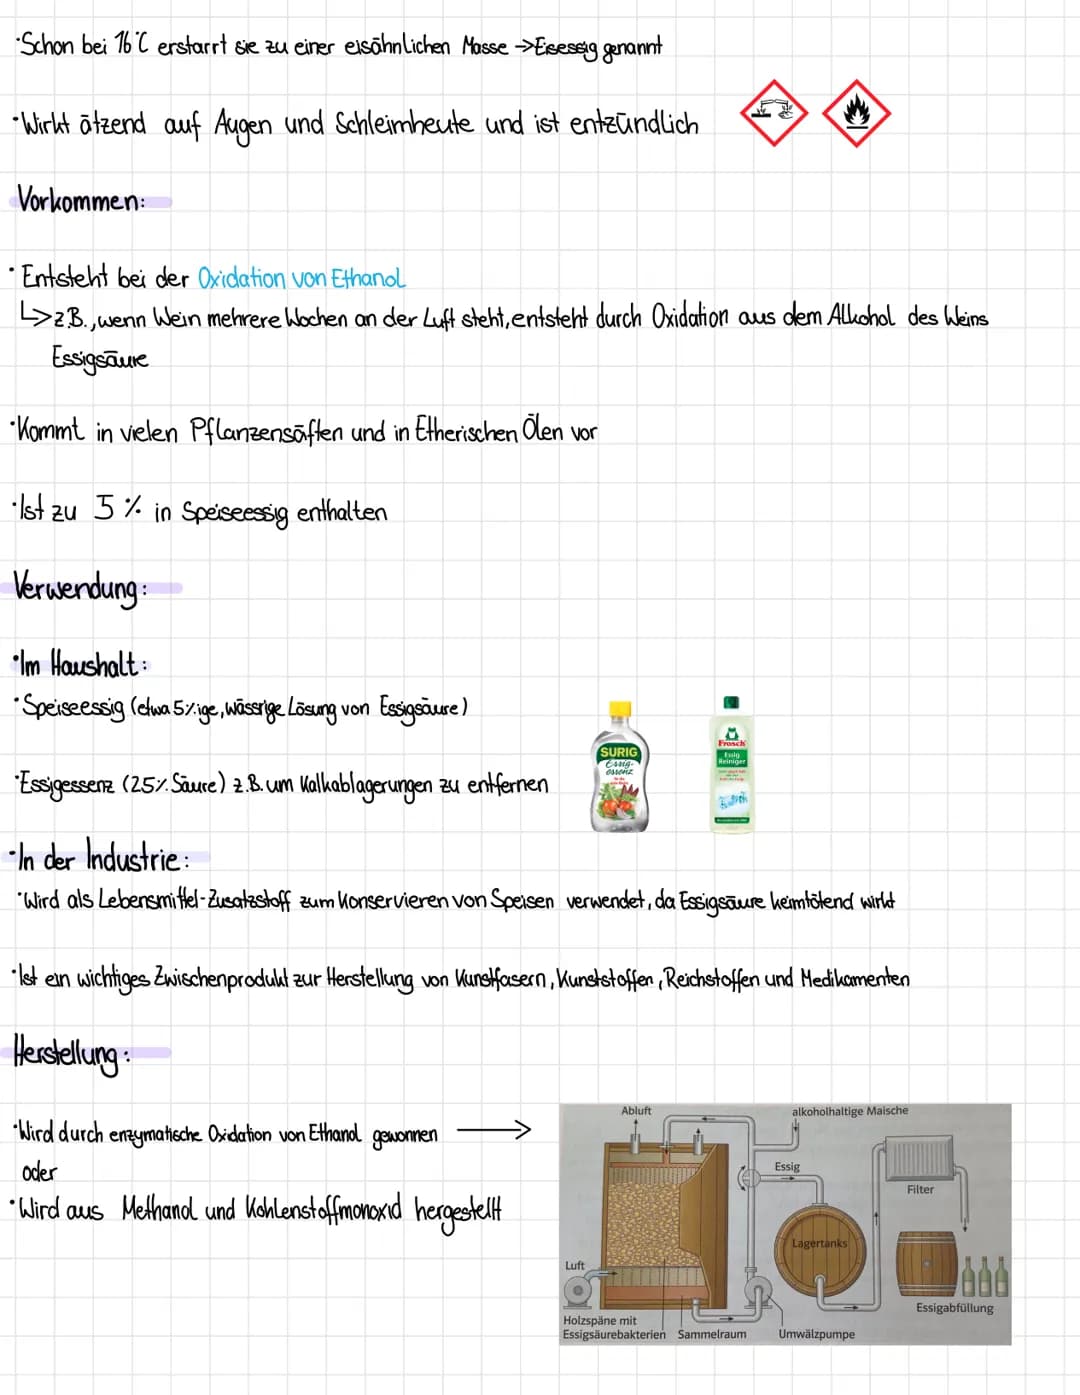 ·Schon bei 16°C erstarrt sie zu einer eisähnlichen Masse →Eisessig genannt
·Wirkt ätzend auf Augen und Schleimheute und ist entzündlich
Vorkommen:
·Entsteht bei der Oxidation von Ethanol
↳z.B., wenn Wein mehrere Wochen an der Luft steht, entsteht durch Oxidation aus dem Alkohol des Weins
Essigsäure
·Kommt in vielen Pflanzensäften und in Etherischen Ölen vor
·Ist zu 5% in Speiseessig enthalten
Verwendung:
·Im Haushalt:
·Speiseessig (etwa 5%ige, wässrige Lösung von Essigsäure)
·Essigessenz (25% Säure) z.B. um Kalkablagerungen zu entfernen
SURIG
Essig-
essenz
Frosch
Essig
Reiniger
·In der Industrie:
·Wird als Lebensmittel-Zusatzstoff zum Konservieren von Speisen verwendet, da Essigsäure keimtötend wirkt
·Ist ein wichtiges Zwischenprodukt zur Herstellung von Kunstfasern, Kunststoffen, Reichstoffen und Medikamenten
Herstellung:
·Wird durch enzymatische Oxidation von Ethanol gewonnen →
oder
·Wird aus Methanol und Kohlenstoffmonoxid hergestellt
Abluft
alkoholhaltige Maische
Essig
Filter
Lagertanks
Luft
Essigabfüllung
Holzspäne mit
Essigsäurebakterien
Sammelraum
Umwälzpumpe